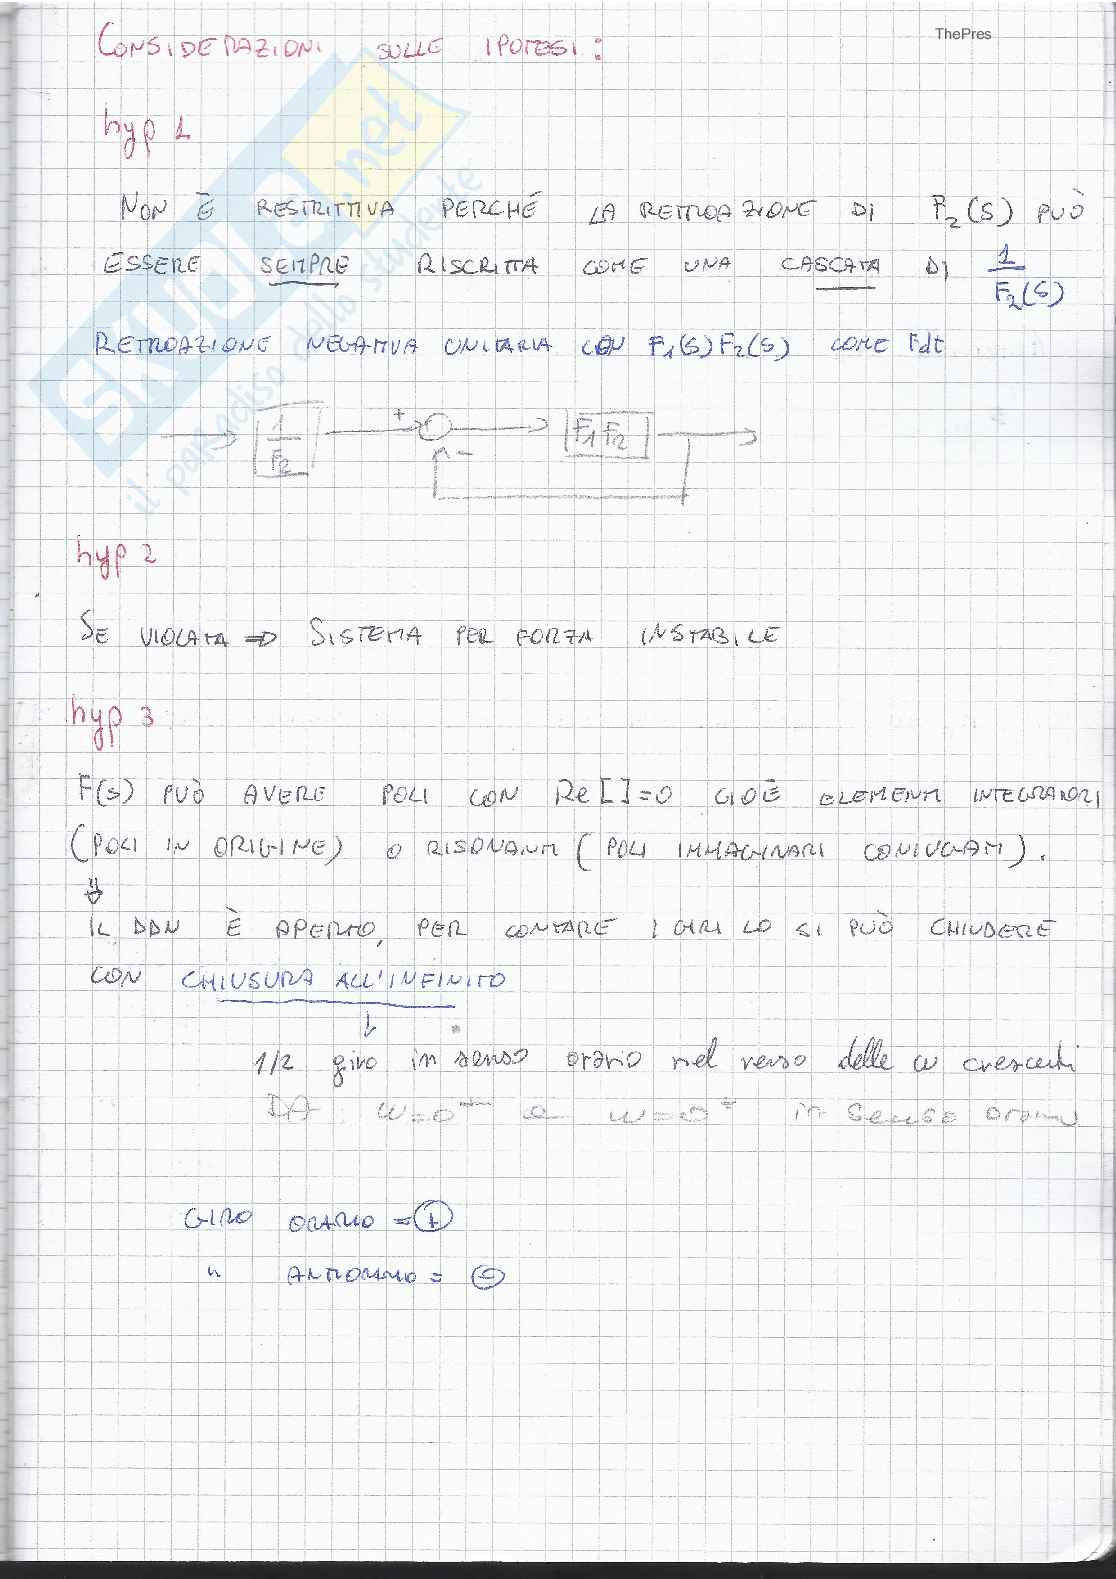 ThePres
CONSIDERAZIONI SULLE IPOTESI:
hyp 1
NON È RESTRITTIVA PERCHÉ LA RETROAZIONE DI F₂(S) PUÒ
ESSERE SEMPRE RISCRITTA COME UNA CASCATA DI 1/F₂(S)
RETROAZIONE NEGATIVA UNITARIA CON F₁(S)F₂(S) COME Fdt
1/F₂ + - F₁F₂
hyp 2
SE VIOLATA => SISTEMA PER FORZA INSTABILE
hyp 3
F(s) PUÒ AVERE POLI CON Re[]=0 CIOÈ ELEMENTI INTEGRATORI
(POLI IN ORIGINE) O RISONANTI (POLI IMMAGINARI CONIUGATI).
⇓
IL DDN È APERTO, PER CONTARE I GIRI LO SI PUÒ CHIUDERE
CON CHIUSURA ALL'INFINITO
↓
1/2 giro in senso orario nel verso delle ω crescenti
DA ω=0⁻ a ω=0⁺ in senso orario
GIRO ORARIO = +
" ANTIORARIO = -
SKUOLA.net
il paradiso dello studente